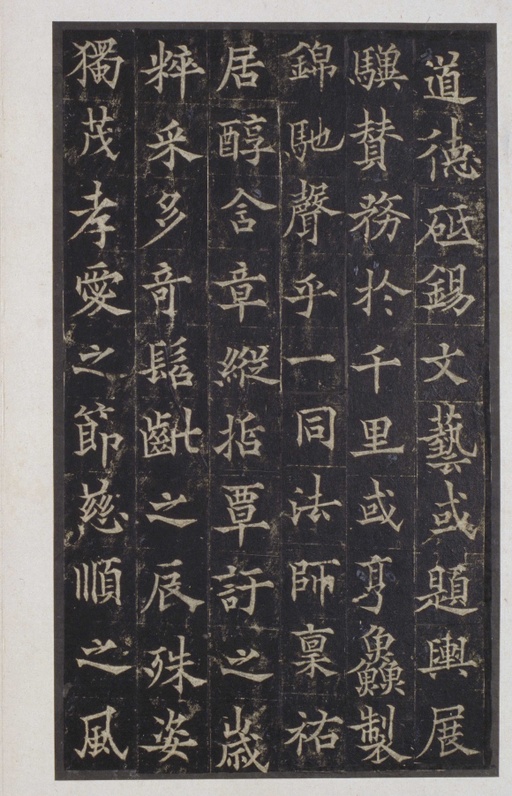 道德砥錫文藝或題輿展
驥贊務於千里或亨鱻製
錦馳聲乎一同法師稟祐
居醇含章縱指覃訏之歲
粹采多奇髫齔之辰殊姿
獨茂孝愛之節慈順之風